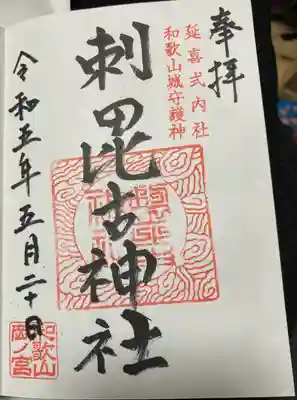 奉拝
延喜式内社
和歌山城守護神
刺毘古神社
令和五年五月二十日
和歌山
岡ノ宮